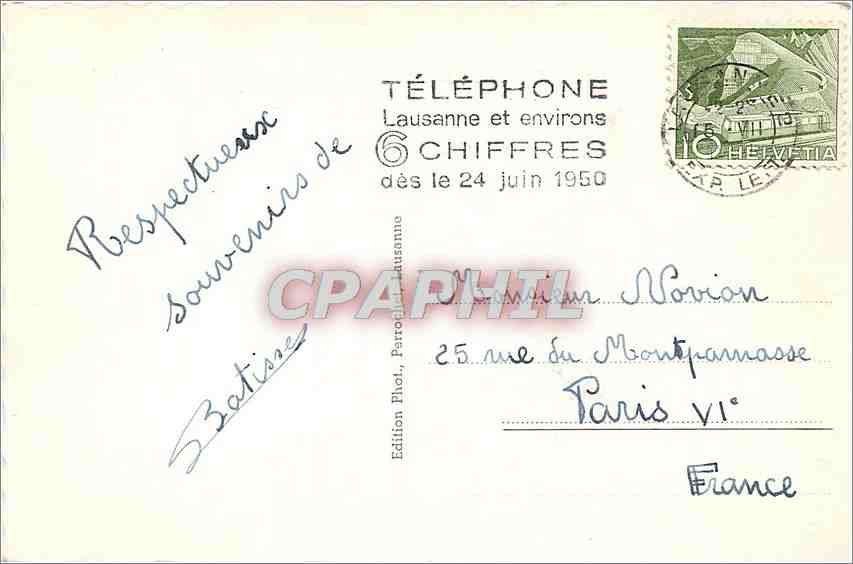 TÉLÉPHONE
Lausanne et environs
6 CHIFFRES
dès le 24 juin 1950
10 HELVETIA
VII
EXP. LE
Respectueux
souvenirs de
Batisse
Edition Phot., Perrochet, Lausanne
CPAPHIL
Monsieur Novion
25 rue du Montparnasse
Paris VIe
France